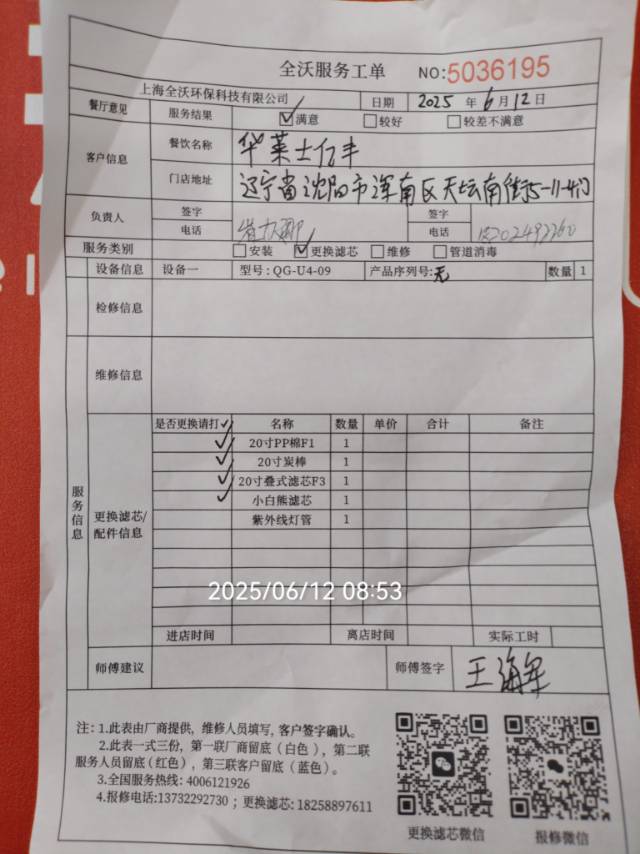 全沃服务工单 NO:5036195
上海全沃环保科技有限公司 日期 2025 年 6 月 12 日
餐厅意见 服务结果 ☑满意 □较好 □较差不满意
客户信息 餐饮名称 华莱士亿丰
门店地址 辽宁省沈阳市浑南区天坛南街5-11-4门
负责人 签字 签字
电话 电话
服务类别 □安装 ☑更换滤芯 □维修 □管道消毒
设备信息 设备一 型号: QG-U4-09 产品序列号: 无 数量 1
检修信息
维修信息
服务信息
更换滤芯/配件信息
是否更换请打✓ 名称 数量 单价 合计 备注
✓ 20寸PP棉F1 1
✓ 20寸炭棒 1
✓ 20寸叠式滤芯F3 1
✓ 小白熊滤芯 1
紫外线灯管 1
2025/06/12 08:53
进店时间 离店时间 实际工时
师傅建议 师傅签字 王海军
注: 1.此表由厂商提供, 维修人员填写, 客户签字确认。
2.此表一式三份, 第一联厂商留底 (白色), 第二联
服务人员留底(红色), 第三联客户留底 (蓝色)。
3.全国服务热线: 4006121926
4.报修电话:13732292730 ; 更换滤芯: 18258897611
更换滤芯微信 报修微信